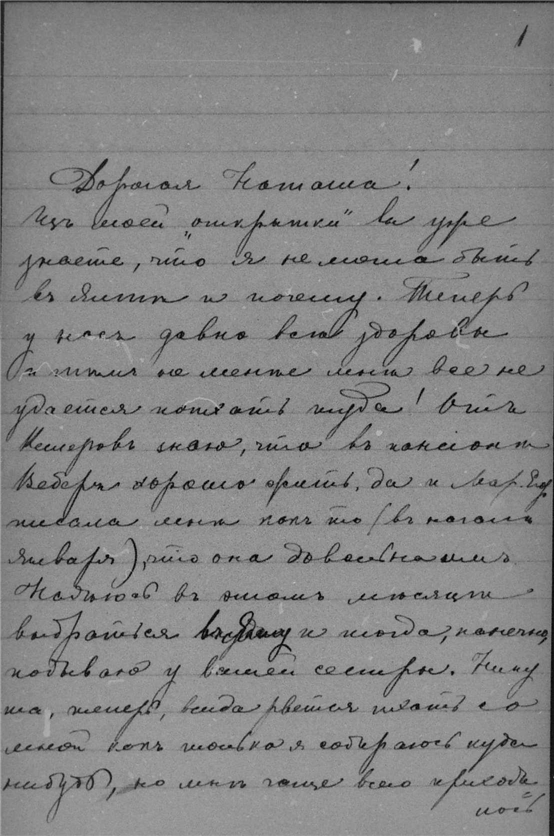 1
Дорогая Наташа!
Изъ моей „открытки“ Вы уже
знаете, что я не могла быть
въ Ялтѣ и почему. Теперь
у насъ давно всѣ здоровы
и тѣмъ не менѣе мнѣ все не
удается поѣхать туда! Отъ
знаю, что въ пансіонѣ
Веберъ хорошо жить, да и Мар. Егор.
писала мнѣ какъ то (въ началѣ
января), что она довольна имъ.
Надѣюсь въ этомъ мѣсяцѣ
выбраться и тогда, конечно,
побываю у вашей сестры. Нику
та, теперь, всегда рвется ѣхать со
мной какъ только я собираюсь куда
нибудь, но мнѣ чаще всего приходи
лось